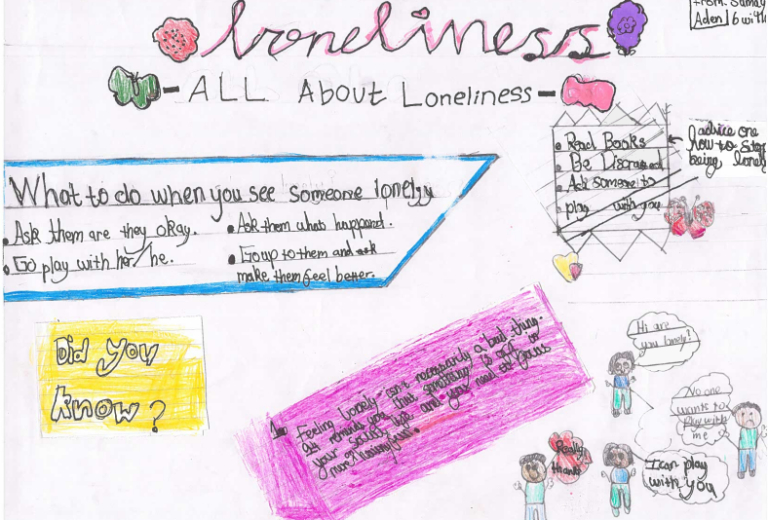 from: Samay
Aden 16 with
loneliness
- ALL About Loneliness -
• Read Books
• Be Discrased
• Ask someone to
• play with you
advice one
how to stop
being lonely
What to do when you see someone lonely
• Ask them are they okay.
• Go play with her/he.
• Ask them whats happand.
• Go up to them and ask
make them feel better.
Did you
know?
1. Feeling lonely isn't necessarily a bad thing.
It reminds you that something is off in
your social life and you need to focus
Hi are
you lonely?
No one
wants to
play with
me
I can play
with you
Really
thanks